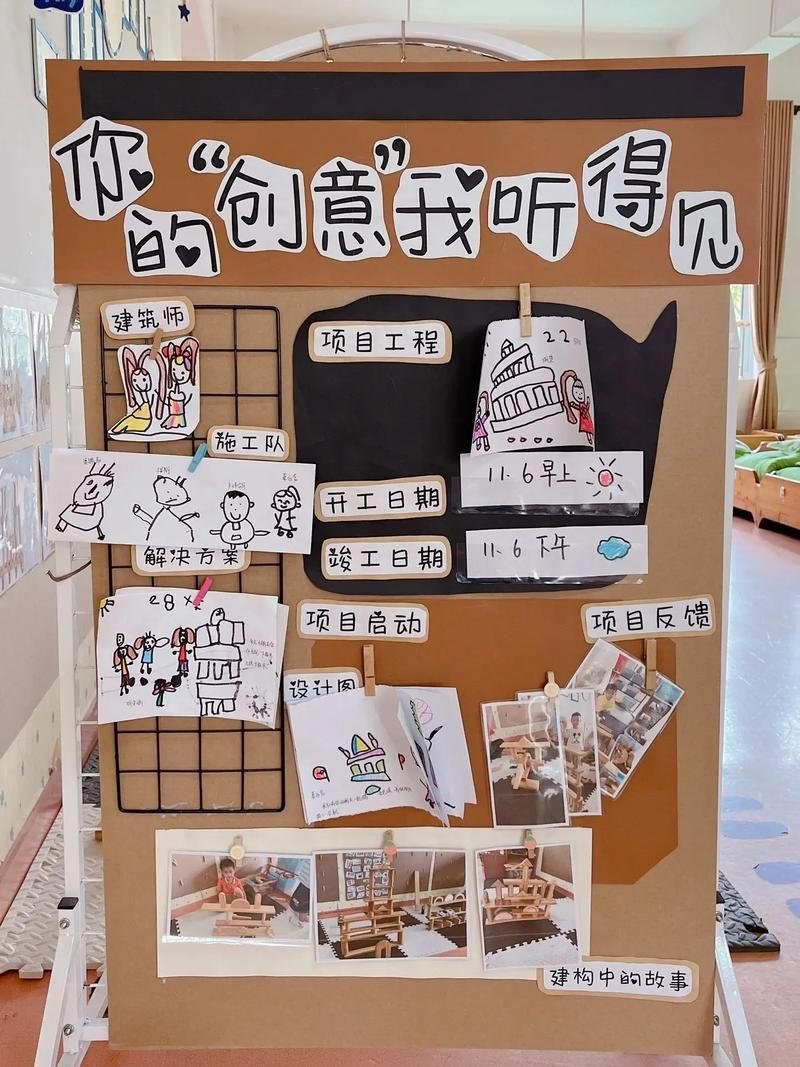 你的“创意”我听得见
建筑师
项目工程
22
施工队
开工日期
11.6早上
竣工日期
11.6下午
解决方案
28
项目启动
项目反馈
设计图
建构中的故事